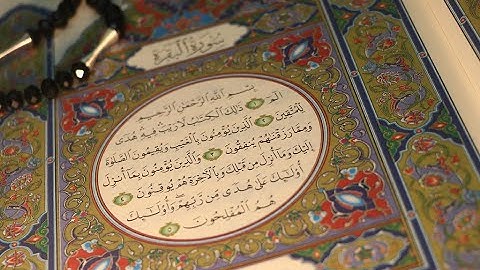 سُورَةُ الْبَقَرَةِ
بِسْمِ اللَّهِ الرَّحْمَٰنِ الرَّحِيمِ
الٓمٓ ۝١ ذَٰلِكَ الْكِتَٰبُ لَا رَيْبَ فِيهِ هُدًى
لِّلْمُتَّقِينَ ۝٢ الَّذِينَ يُؤْمِنُونَ بِالْغَيْبِ وَيُقِيمُونَ الصَّلَوٰةَ
وَمِمَّا رَزَقْنَٰهُمْ يُنفِقُونَ ۝٣ وَالَّذِينَ يُؤْمِنُونَ بِمَآ أُنزِلَ
إِلَيْكَ وَمَآ أُنزِلَ مِن قَبْلِكَ وَبِالْءَاخِرَةِ هُمْ يُوقِنُونَ ۝٤
أُو۟لَٰٓئِكَ عَلَىٰ هُدًى مِّن رَّبِّهِمْ وَأُو۟لَٰٓئِكَ
هُمُ الْمُفْلِحُونَ ۝٥